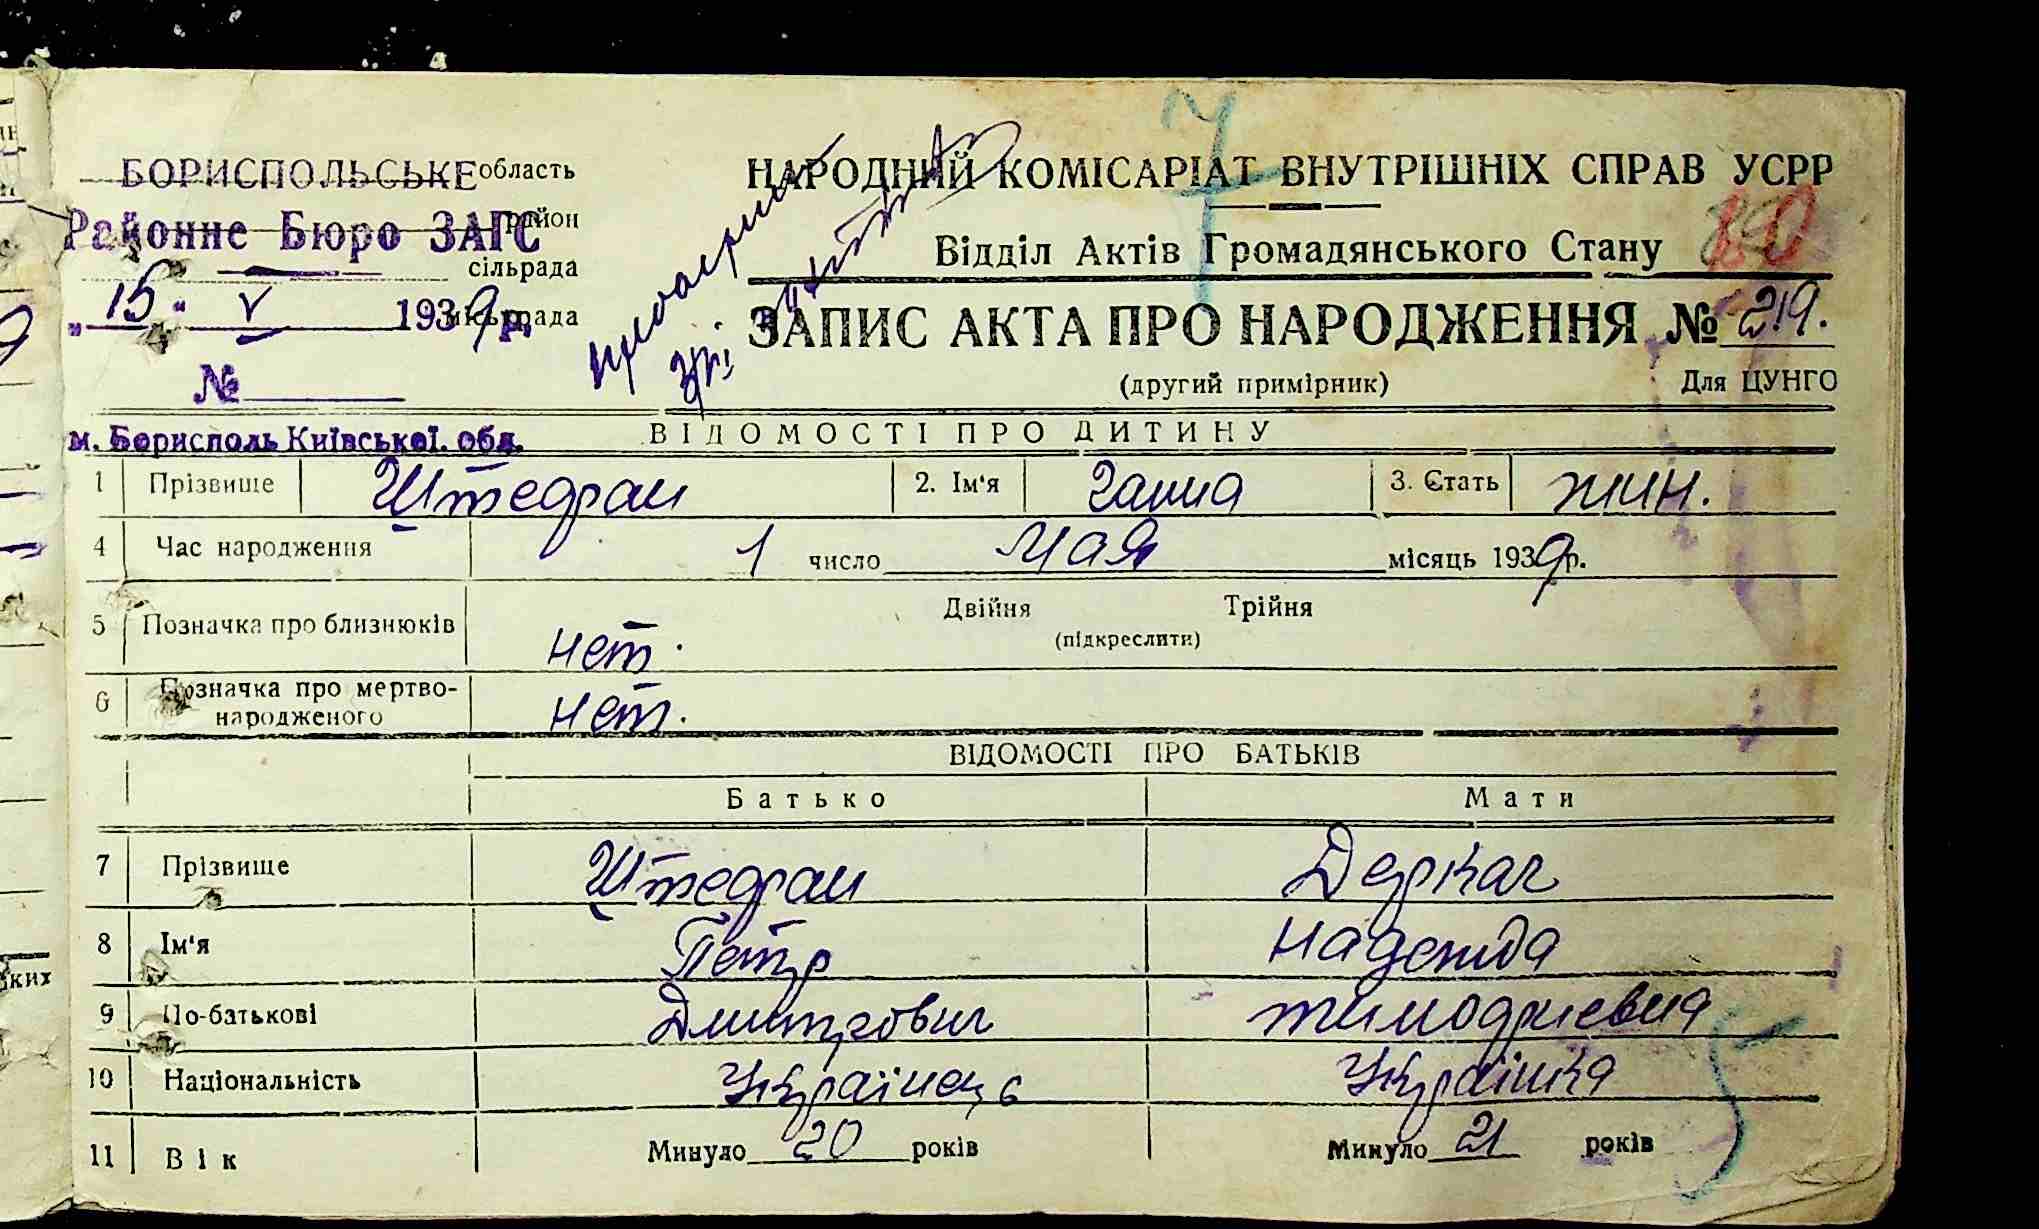 БОРИСПОЛЬСЬКЕ область
Районне Бюро ЗАГС район
сільрада
„15“ V 1939 р. міськрада
№
м. Бориспіль Київської. обл.
7
НАРОДНИЙ КОМІСАРІАТ ВНУТРІШНІХ СПРАВ УСРР
Відділ Актів Громадянського Стану
ЗАПИС АКТА ПРО НАРОДЖЕННЯ № 219.
(другий примірник) Для ЦУНГО
ВІДОМОСТІ ПРО ДИТИНУ
1 Прізвище Штефан 2. Ім'я Ганна 3. Стать жин.
4 Час народження 1 число мая місяць 1939 р.
5 Позначка про близнюків нет. Двійня Трійня
(підкреслити)
6 Позначка про мертво-
народженого нет.
ВІДОМОСТІ ПРО БАТЬКІВ
Батько Мати
7 Прізвище Штефан Деркач
8 Ім'я Петр Надежда
9 По-батькові Дмитрович Тимофиевна
10 Національність Українець Українка
11 Вік Минуло 20 років Минуло 21 років